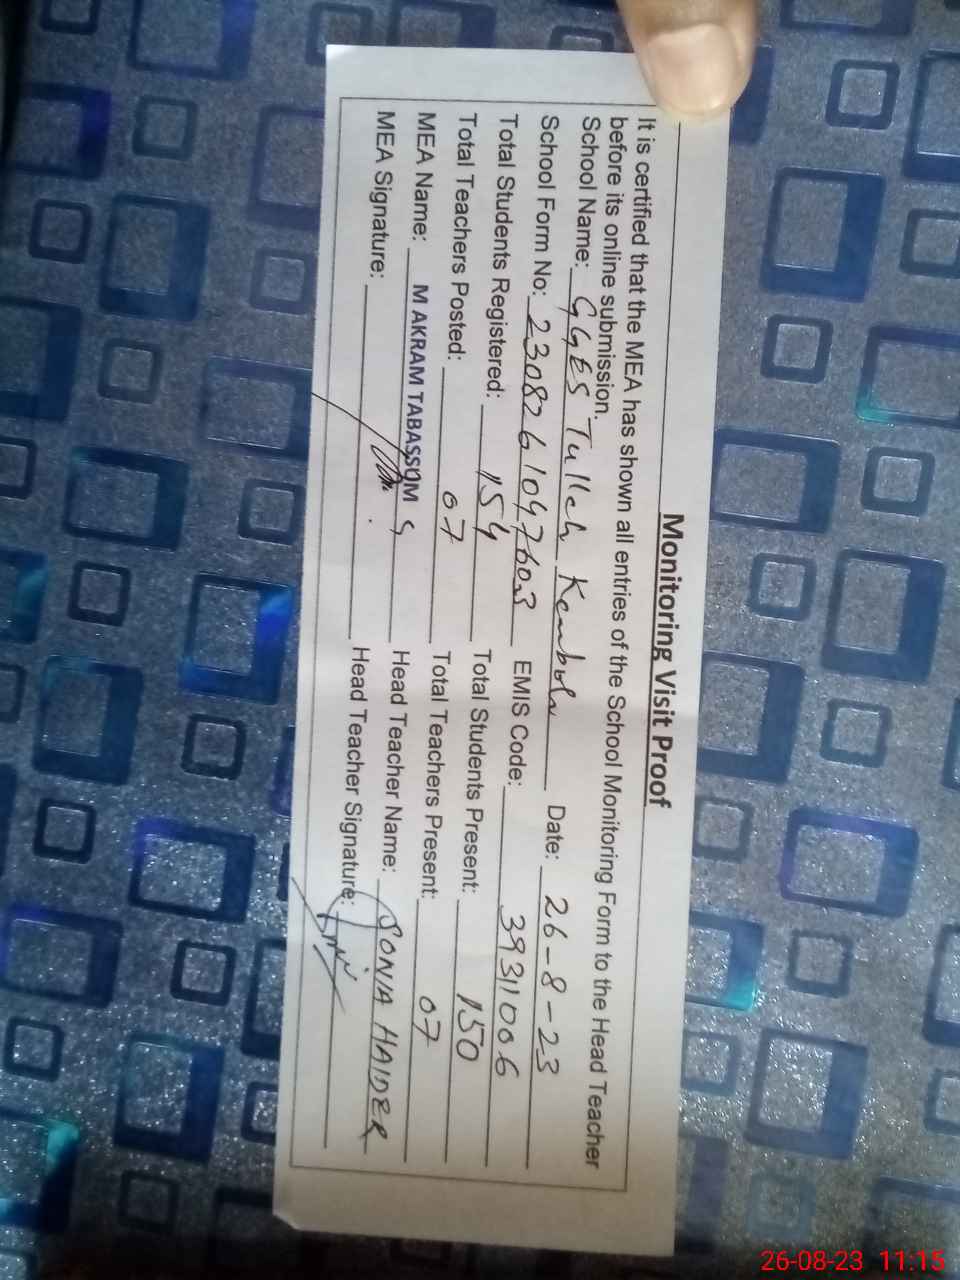 Monitoring Visit Proof
It is certified that the MEA has shown all entries of the School Monitoring Form to the Head Teacher
before its online submission.
School Name: GGES Tulleh Date: 26-8-23
School Form No: 230826104760 EMIS Code: 39311006
Total Students Registered: 154 Total Students Present: 150
Total Teachers Posted: 07 Total Teachers Present: 07
MEA Name: M AKRAM TABASSOM Head Teacher Name: SONIA HAIDER
MEA Signature: Head Teacher Signature:
26-08-23 11:15